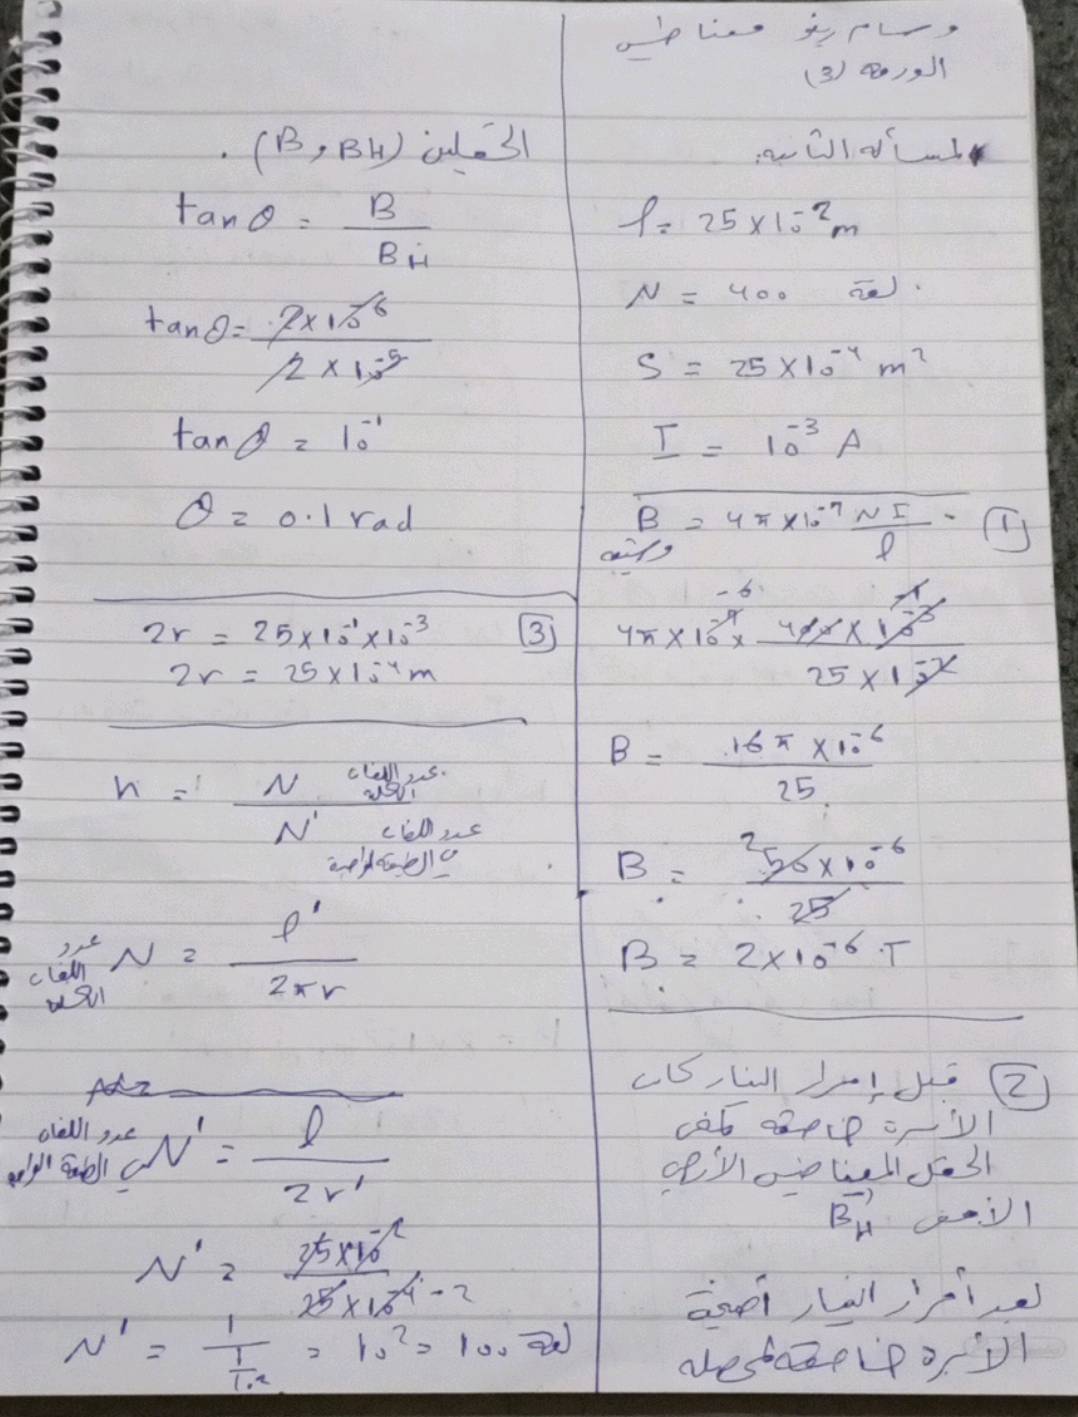 وسام زينو مغناطيس
الورقة (3)
المسألة الثانية:
l = 25 × 10⁻² m
N = 400 لفة
S = 25 × 10⁻⁴ m²
I = 10⁻³ A
① B = 4π × 10⁻⁷ NI / l
وشيعة
4π × 10⁻⁷ × 400 × 10⁻³ / 25 × 10⁻²
B = 16π × 10⁻⁶ / 25
B = 50 × 10⁻⁶ / 25
B = 2 × 10⁻⁶ T
② قبل إمرار التيار كانت
الأبرة خاضعة لمفعول
الحقل المغناطيسي الأرضي
الأفقي B_H
بعد أمرار التيار أصبحت
الأبرة خاضعة لمحصلة
الحقلين (B, BH).
tan θ = B / BH
tan θ = 2 × 10⁻⁶ / 2 × 10⁻⁵
tan θ = 10⁻¹
θ = 0.1 rad
③ 2r = 25 × 10⁻¹ × 10⁻³
2r = 25 × 10⁻⁴ m
n = N عدد اللفات الكلية / N' عدد اللفات في الطبقة الواحدة
عدد اللفات الكلية N = l' / 2πr
عدد اللفات في الطبقة الواحدة N' = l / 2r'
N' = 25 × 10⁻² / 25 × 10⁻⁴ -2
N' = 1 / 1/10² = 10² = 100 لفة